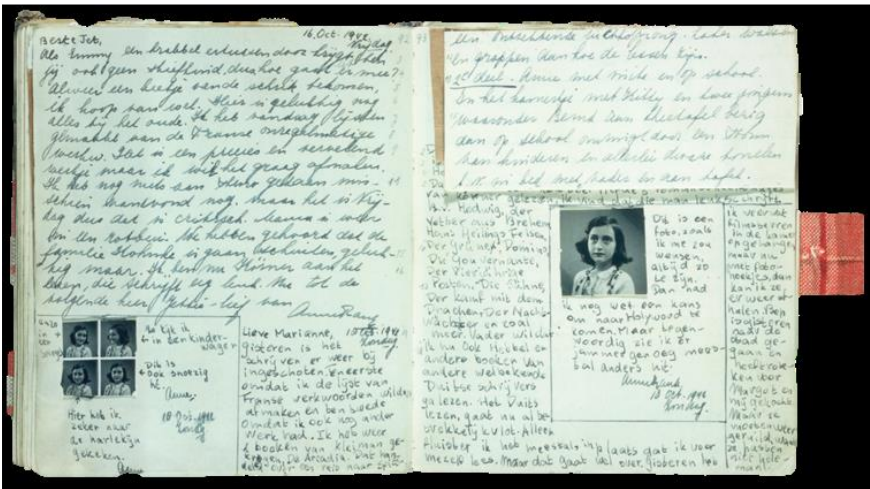 16 Oct. 1942
Beste Jet, Vrijdag
Als Emmy een krabbel ertussen door krijgt, ben
jij ook geen stiefkind, dus hoe gaat er mee?
Alweer een beetje van de schrik bekomen,
ik hoop van wel. Hier is gelukkig nog
alles bij het oude. Ik heb vandaag lijsten
gemaakt van de Franse onregelmatige
werkw. Het is een precies en vervelend
werkje maar ik wil het graag afmaken.
Ik heb nog niets aan steno gedaan mis-
schien vanavond nog, maar het is Vrij-
dag dus dat is critisch. Mama is weer
in een rothbui. We hebben gehoord dat de
familie is gaan scheiden, geluk-
kig maar. Ik ben nu Körner aan het
lezen, die schrijft erg leuk. Nu tot de
volgende keer
Anne Frank
Zo kijk ik
in den kinder-
wagen
Dit is
ook snoezig
hè.
Anne
18 Oct. 1942
Zondag
Hier heb ik
zeker naar
de harlekijn
gekeken.
Anne
Lieve Marianne, 18 Oct. 1942
Zondag
gisteren is het
schrijven er weer bij
ingeschoten. Eneerste
omdat ik de lijst van
Franse werkwoorden wilde
afmaken en ten twede
omdat ik ook nog ander
werk had. Ik heb weer
2 boeken van Kleiman ge-
kregen, De Arcadia, dat han-
delt over een reis naar Spitz-
een ontzettende luchtsprong. Later walsen
en grappen aan hoe de lessen zijn.
2e deel. Anne met visite en op school.
En het kamertje met Kitty en twee jongens
waaronder Bernd aan theetafel bezig
dan op school omringd door een stroom
van kinderen en allerlei dwaze tonelen
b.v. in bed met vader en aan tafel.
Hedwig, der
Vetter aus Bremen,
Hans Heilings Felsen,
Der Grüne Domino,
Die Gouvernante,
Der Vierjährige
Posten, Die Sühne,
Der Kampf mit dem
Drachen, Der Nacht-
wächter en zoal
meer. Vader wil dat
ik nu ook Hebbel en
andere boeken van
andere welbekende
Duitse schrijvers
ga lezen. Het Duits
lezen, gaat nu al be-
trekkelijk vlot. Alleen
fluister ik het meestal, in plaats dat ik voor
mezelf lees. Maar dat gaat wel over. Gisteren heb
Dit is een
foto, zoals
ik me zou
wensen,
altijd zo
te zijn.
Dan had
ik nog wel een kans
om naar Holywood te
komen. Maar tegen-
woordig zie ik er
jammer genoeg mees-
tal anders uit.
Anne Frank.
18 Oct. 1942
Zondag.
ik vervast
filmsterren
in de kamer
opgehangen,
maar nu
met foto-
hoekjes, dan
kan ik ze
er weer af-
halen. Bep
is gisteren
naar de
stad ge-
gaan en
heeft rok-
ken voor
Margot en
mij gekocht.
Maar ze
moeten weer
geruild, want
ze passen
niet hele-
maal.